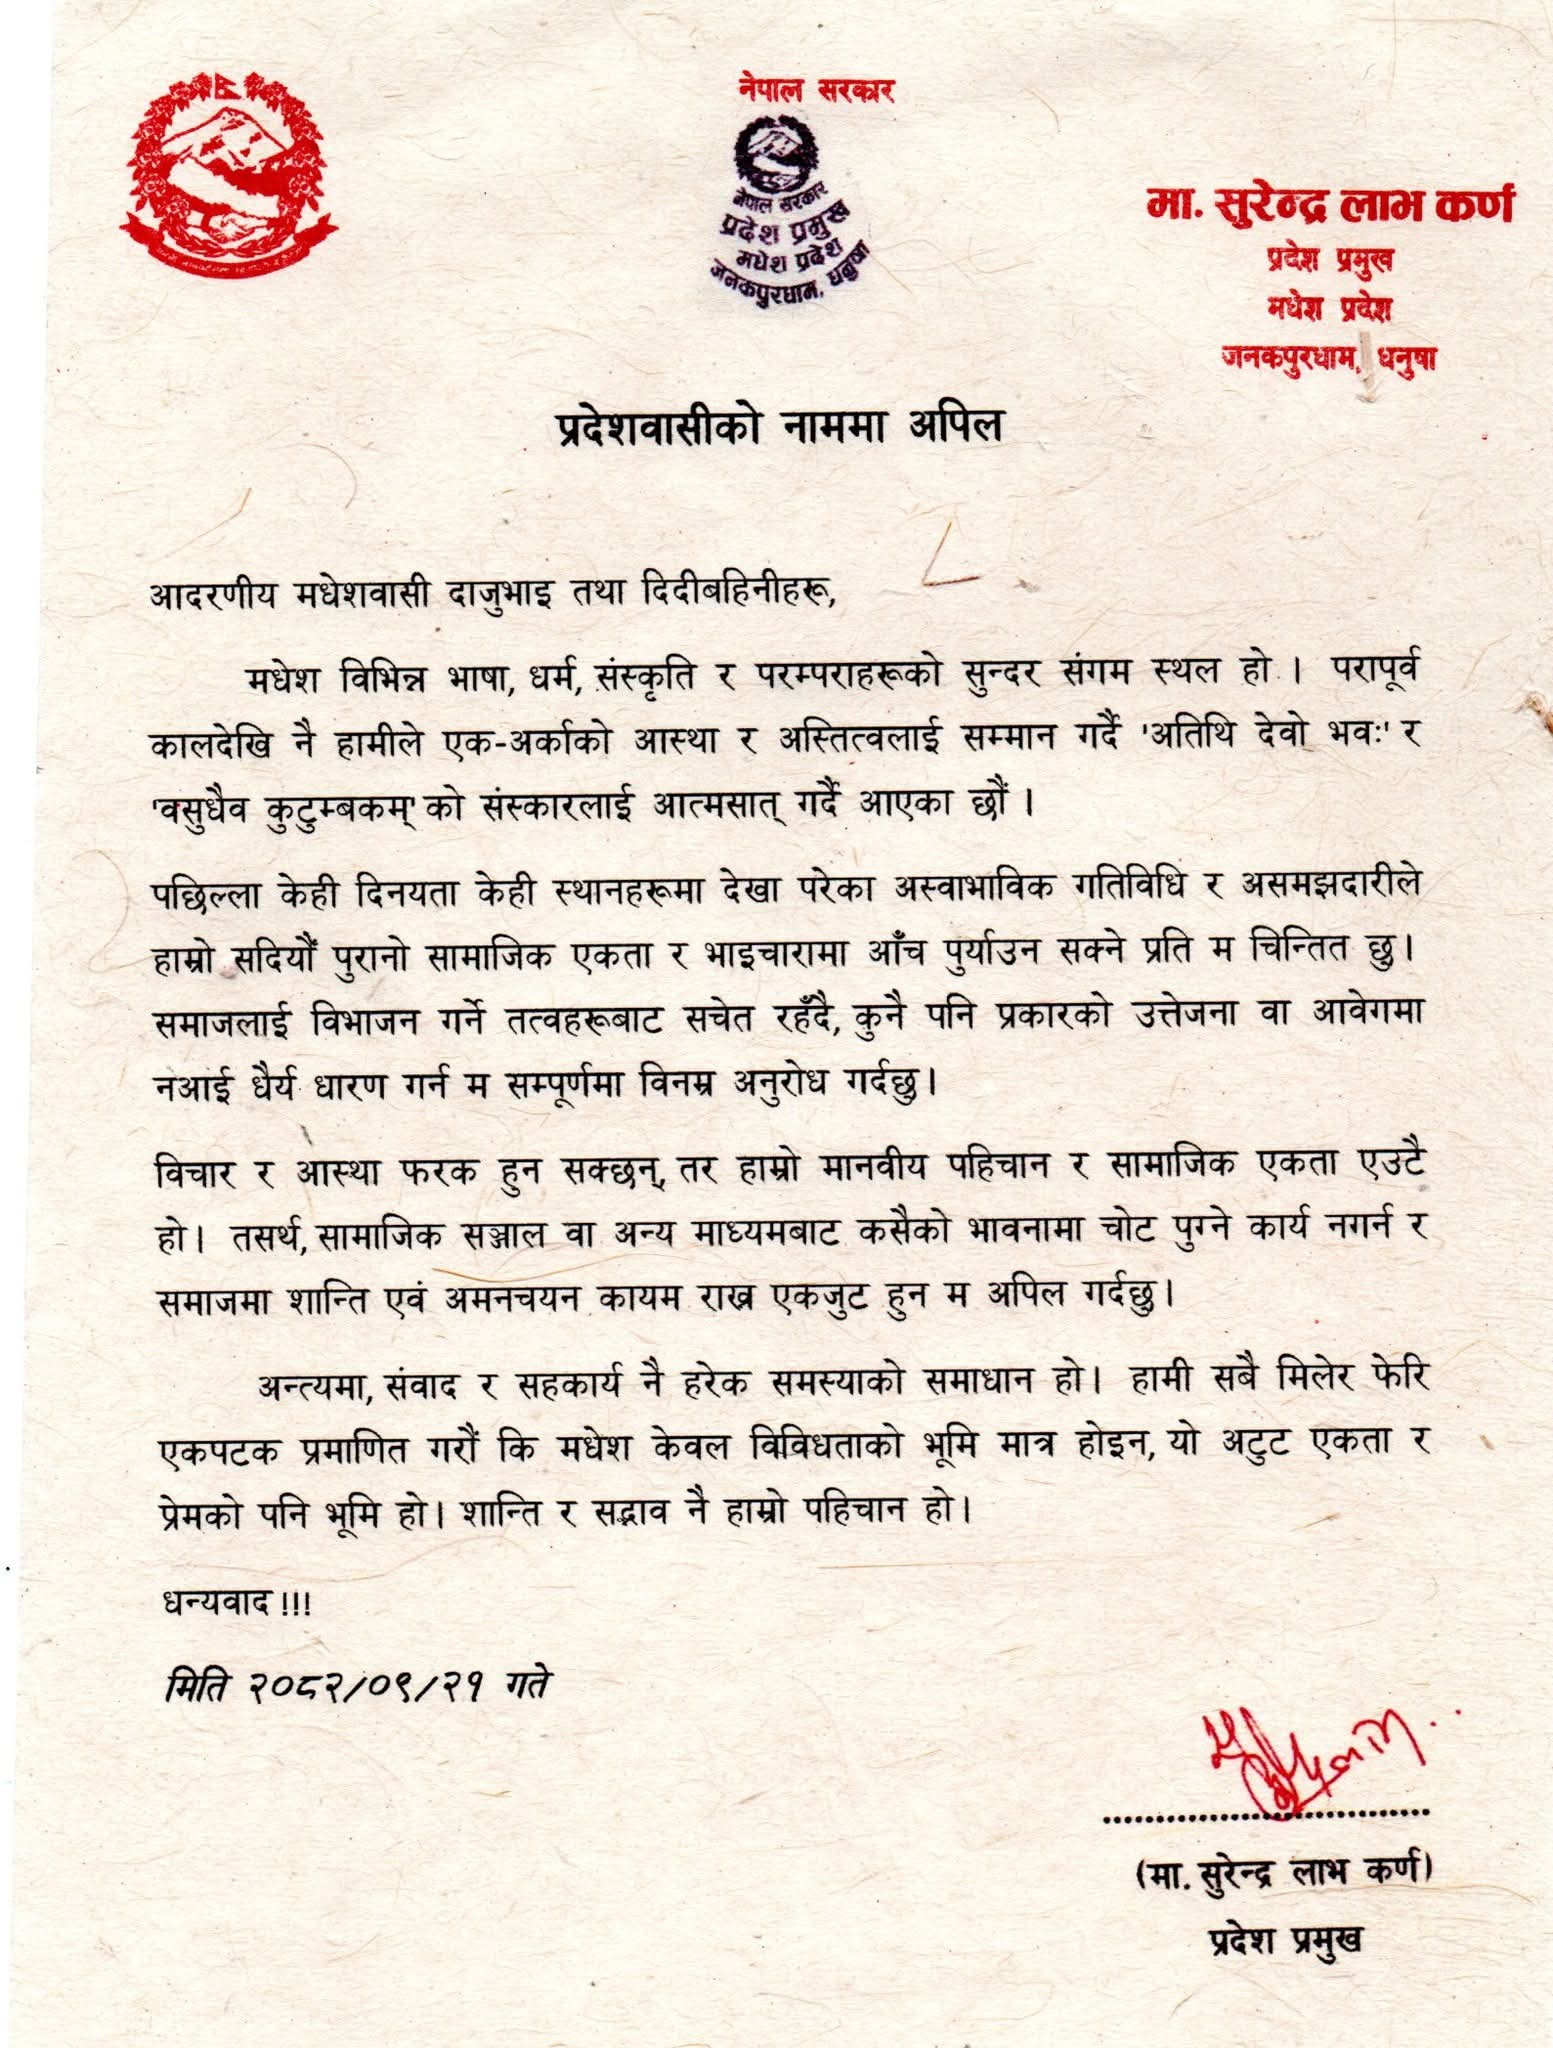 नेपाल सरकार
नेपाल सरकार
प्रदेश प्रमुख
मधेश प्रदेश
जनकपुरधाम, धनुषा
मा. सुरेन्द्र लाभ कर्ण
प्रदेश प्रमुख
मधेश प्रदेश
जनकपुरधाम, धनुषा
प्रदेशवासीको नाममा अपिल
आदरणीय मधेशवासी दाजुभाइ तथा दिदीबहिनीहरू,
मधेश विभिन्न भाषा, धर्म, संस्कृति र परम्पराहरूको सुन्दर संगम स्थल हो । परापूर्व
कालदेखि नै हामीले एक-अर्काको आस्था र अस्तित्वलाई सम्मान गर्दै 'अतिथि देवो भवः' र
'वसुधैव कुटुम्बकम्' को संस्कारलाई आत्मसात् गर्दै आएका छौं ।
पछिल्ला केही दिनयता केही स्थानहरूमा देखा परेका अस्वाभाविक गतिविधि र असमझदारीले
हाम्रो सदियौं पुरानो सामाजिक एकता र भाइचारामा आँच पुर्याउन सक्ने प्रति म चिन्तित छु ।
समाजलाई विभाजन गर्ने तत्वहरूबाट सचेत रहँदै, कुनै पनि प्रकारको उत्तेजना वा आवेगमा
नआई धैर्य धारण गर्न म सम्पूर्णमा विनम्र अनुरोध गर्दछु ।
विचार र आस्था फरक हुन सक्छन्, तर हाम्रो मानवीय पहिचान र सामाजिक एकता एउटै
हो । तसर्थ, सामाजिक सञ्जाल वा अन्य माध्यमबाट कसैको भावनामा चोट पुग्ने कार्य नगर्न र
समाजमा शान्ति एवं अमनचयन कायम राख्न एकजुट हुन म अपिल गर्दछु ।
अन्त्यमा, संवाद र सहकार्य नै हरेक समस्याको समाधान हो । हामी सबै मिलेर फेरि
एकपटक प्रमाणित गरौं कि मधेश केवल विविधताको भूमि मात्र होइन, यो अटुट एकता र
प्रेमको पनि भूमि हो । शान्ति र सद्भाव नै हाम्रो पहिचान हो ।
धन्यवाद !!!
मिति २०८२/०९/२१ गते
(मा. सुरेन्द्र लाभ कर्ण)
प्रदेश प्रमुख